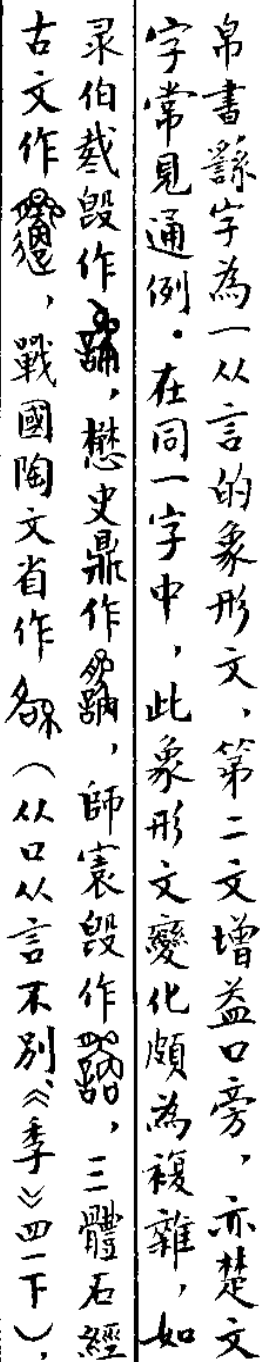 帛書繇字為一从言的象形文，第二文增益口旁，亦楚文
字常見通例。在同一字中，此象形文變化頗為複雜，如
彔伯𢦚毁作，懋史鼎作，師寰毁作，三體石經
古文作，戰國陶文省作（从口从言不別，《季》四一下），